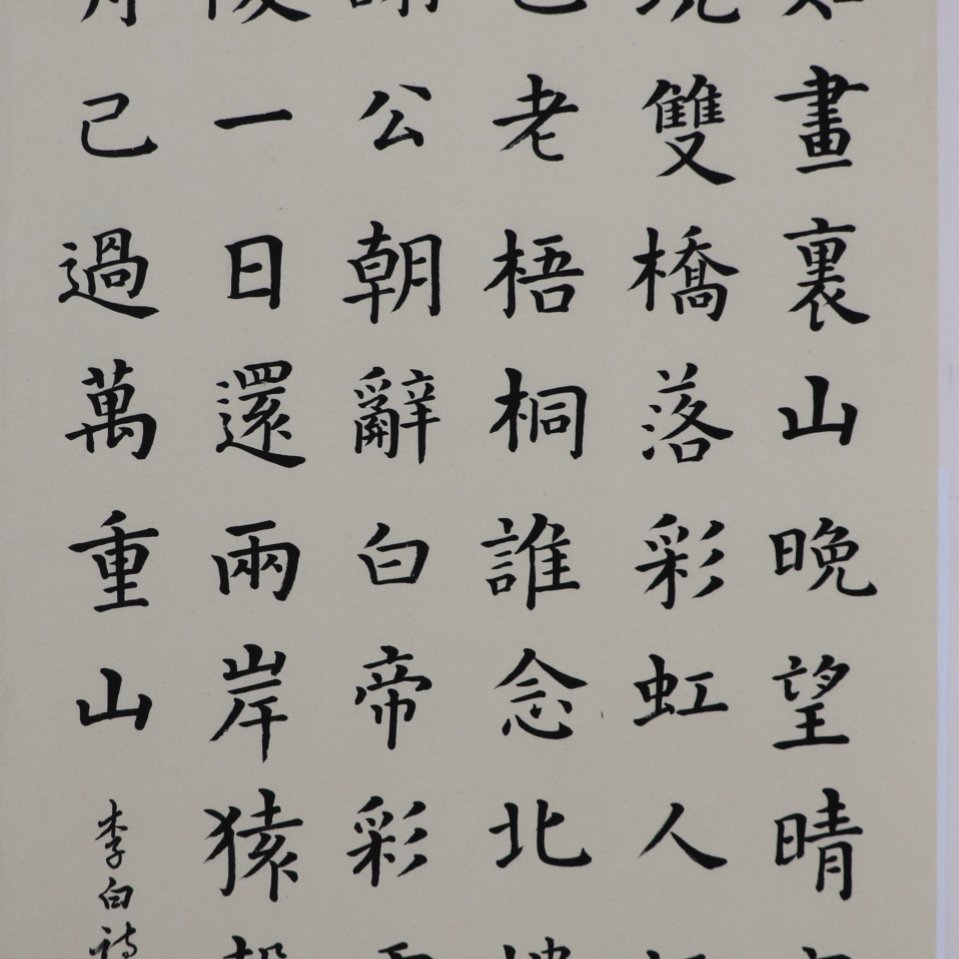 畫裏山晚望晴
雙橋落彩虹人
老梧桐誰念北
公朝辭白帝彩
一日還兩岸猿
已過萬重山
李白詩